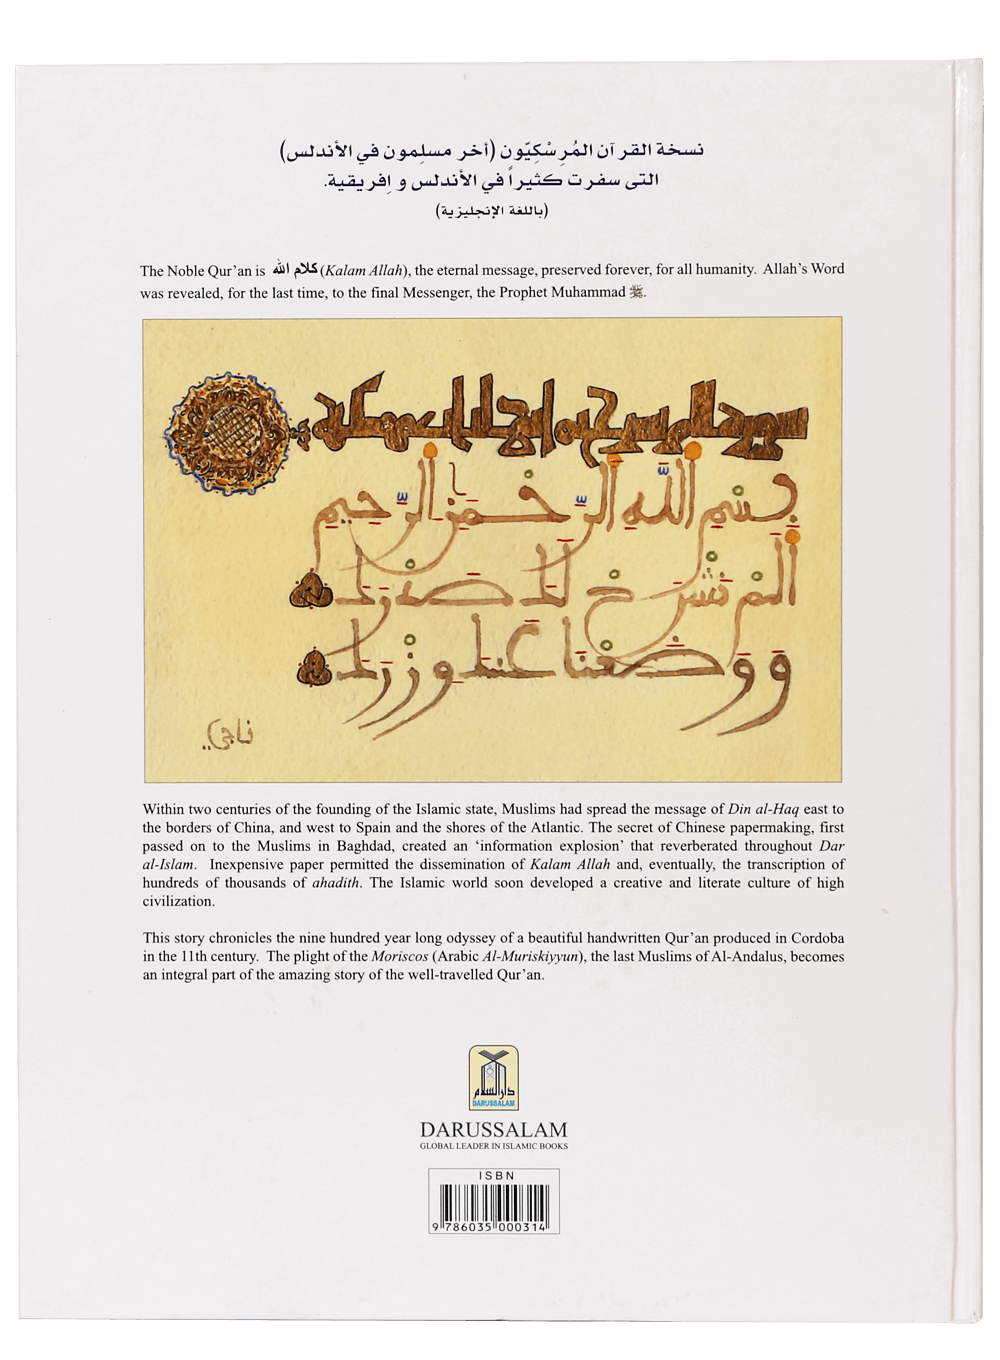 نسخة القرآن المُرِسْكِيّون (أخر مسلِمون في الأندلس)
التى سفرت كثيراً في الأندلس و إفريقية.
(باللغة الإنجليزية)
The Noble Qur’an is كلام الله (Kalam Allah), the eternal message, preserved forever, for all humanity. Allah’s Word
was revealed, for the last time, to the final Messenger, the Prophet Muhammad ﷺ.
بِسْمِ اللَّهِ الرَّحْمَنِ الرَّحِيمِ
أَلَمْ نَشْرَحْ لَكَ صَدْرَكَ
وَوَضَعْنَا عَنكَ وِزْرَكَ
ناجي
Within two centuries of the founding of the Islamic state, Muslims had spread the message of Din al-Haq east to
the borders of China, and west to Spain and the shores of the Atlantic. The secret of Chinese papermaking, first
passed on to the Muslims in Baghdad, created an ‘information explosion’ that reverberated throughout Dar
al-Islam. Inexpensive paper permitted the dissemination of Kalam Allah and, eventually, the transcription of
hundreds of thousands of ahadith. The Islamic world soon developed a creative and literate culture of high
civilization.
This story chronicles the nine hundred year long odyssey of a beautiful handwritten Qur’an produced in Cordoba
in the 11th century. The plight of the Moriscos (Arabic Al-Muriskiyyun), the last Muslims of Al-Andalus, becomes
an integral part of the amazing story of the well-travelled Qur’an.
دار السلام
DARUSSALAM
DARUSSALAM
GLOBAL LEADER IN ISLAMIC BOOKS
ISBN
9 786035 000314